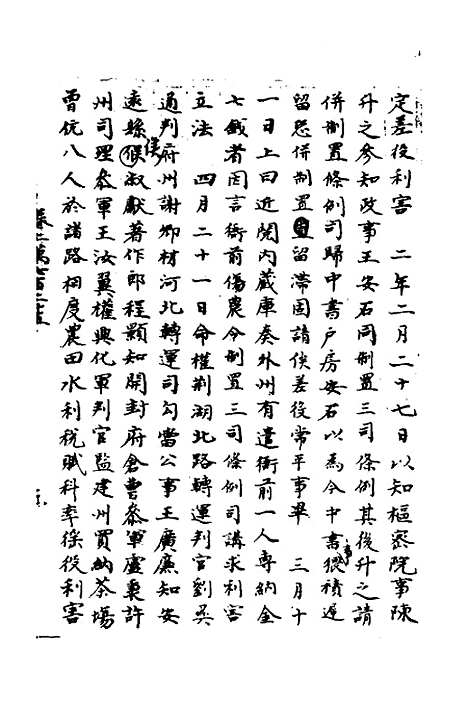 定差役利害　二年二月二十七日以知樞密院事陳
升之參知政事王安石同制置三司條例其後升之請
併制置條例司歸中書戶房安石以為今中書積遲
留恐併制置留滯固請俟差役常平事畢　三月十
一日上曰近閱內藏庫奏外州有遣衙前一人專納金
七錢者因言衙前傷農令制置三司條例司講求利害
立法　四月二十一日命權荊湖北路轉運判官劉彝
通判府州謝卿材河北轉運司勾當公事王廣廉知安
遠縣侯叔獻著作郎程顥知開封府倉曹參軍盧秉許
州司理參軍王汝翼權興化軍判官監建州買納茶場
曾伉八人於諸路相度農田水利稅賦科率徭役利害